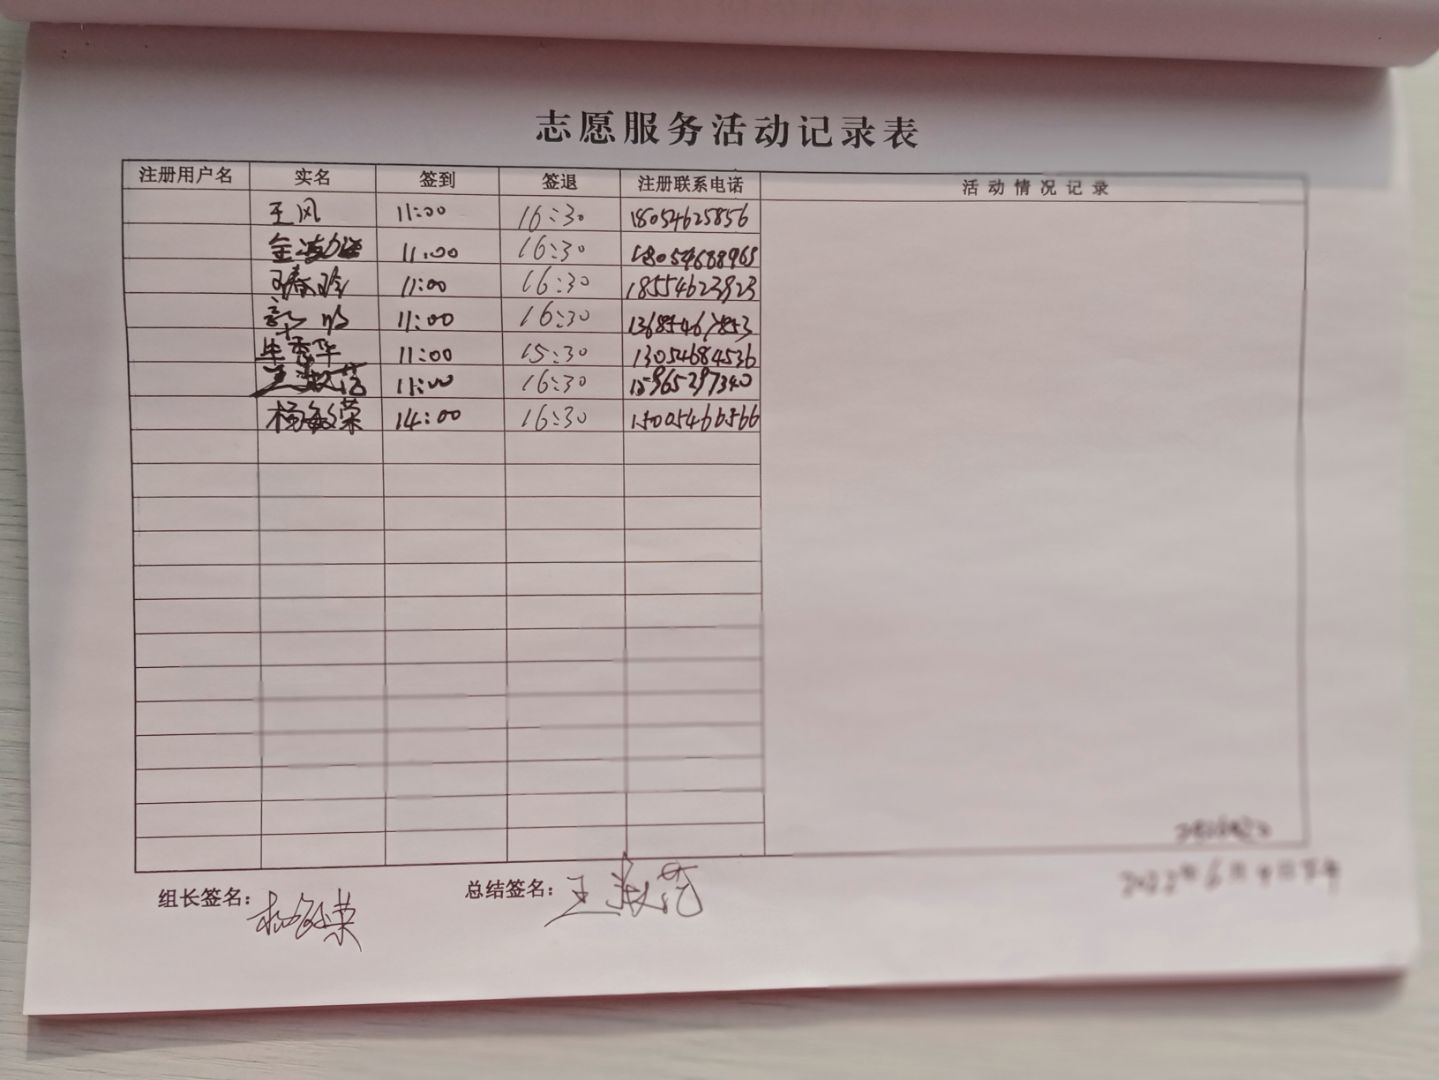 志愿服务活动记录表
注册用户名 实名 签到 签退 注册联系电话 活动情况记录
王风 11:00 16:30 18054625856
11:00 16:30 18054688965
王春玲 11:00 16:30 18554623923
11:00 16:30 13685467853
毕秀华 11:00 15:30 13054684536
王淑范 11:00 16:30 15965297340
杨敏荣 14:00 16:30 15005466566
组长签名：杨敏荣 总结签名：王淑范